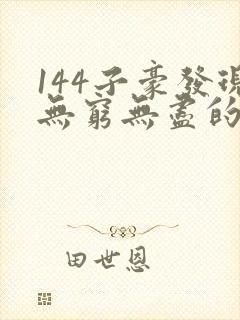 144子豪發現
無窮無盡的
田世恩